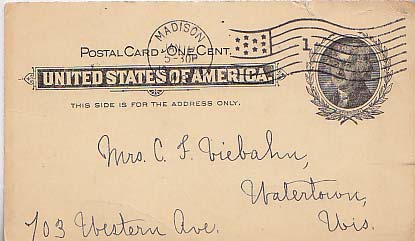 MADISON
POSTAL CARD - ONE CENT.
5-30P
1
UNITED STATES OF AMERICA.
THIS SIDE IS FOR THE ADDRESS ONLY.
Mrs. C. F. Viebahn,
Watertown,
703 Western Ave. Wis.